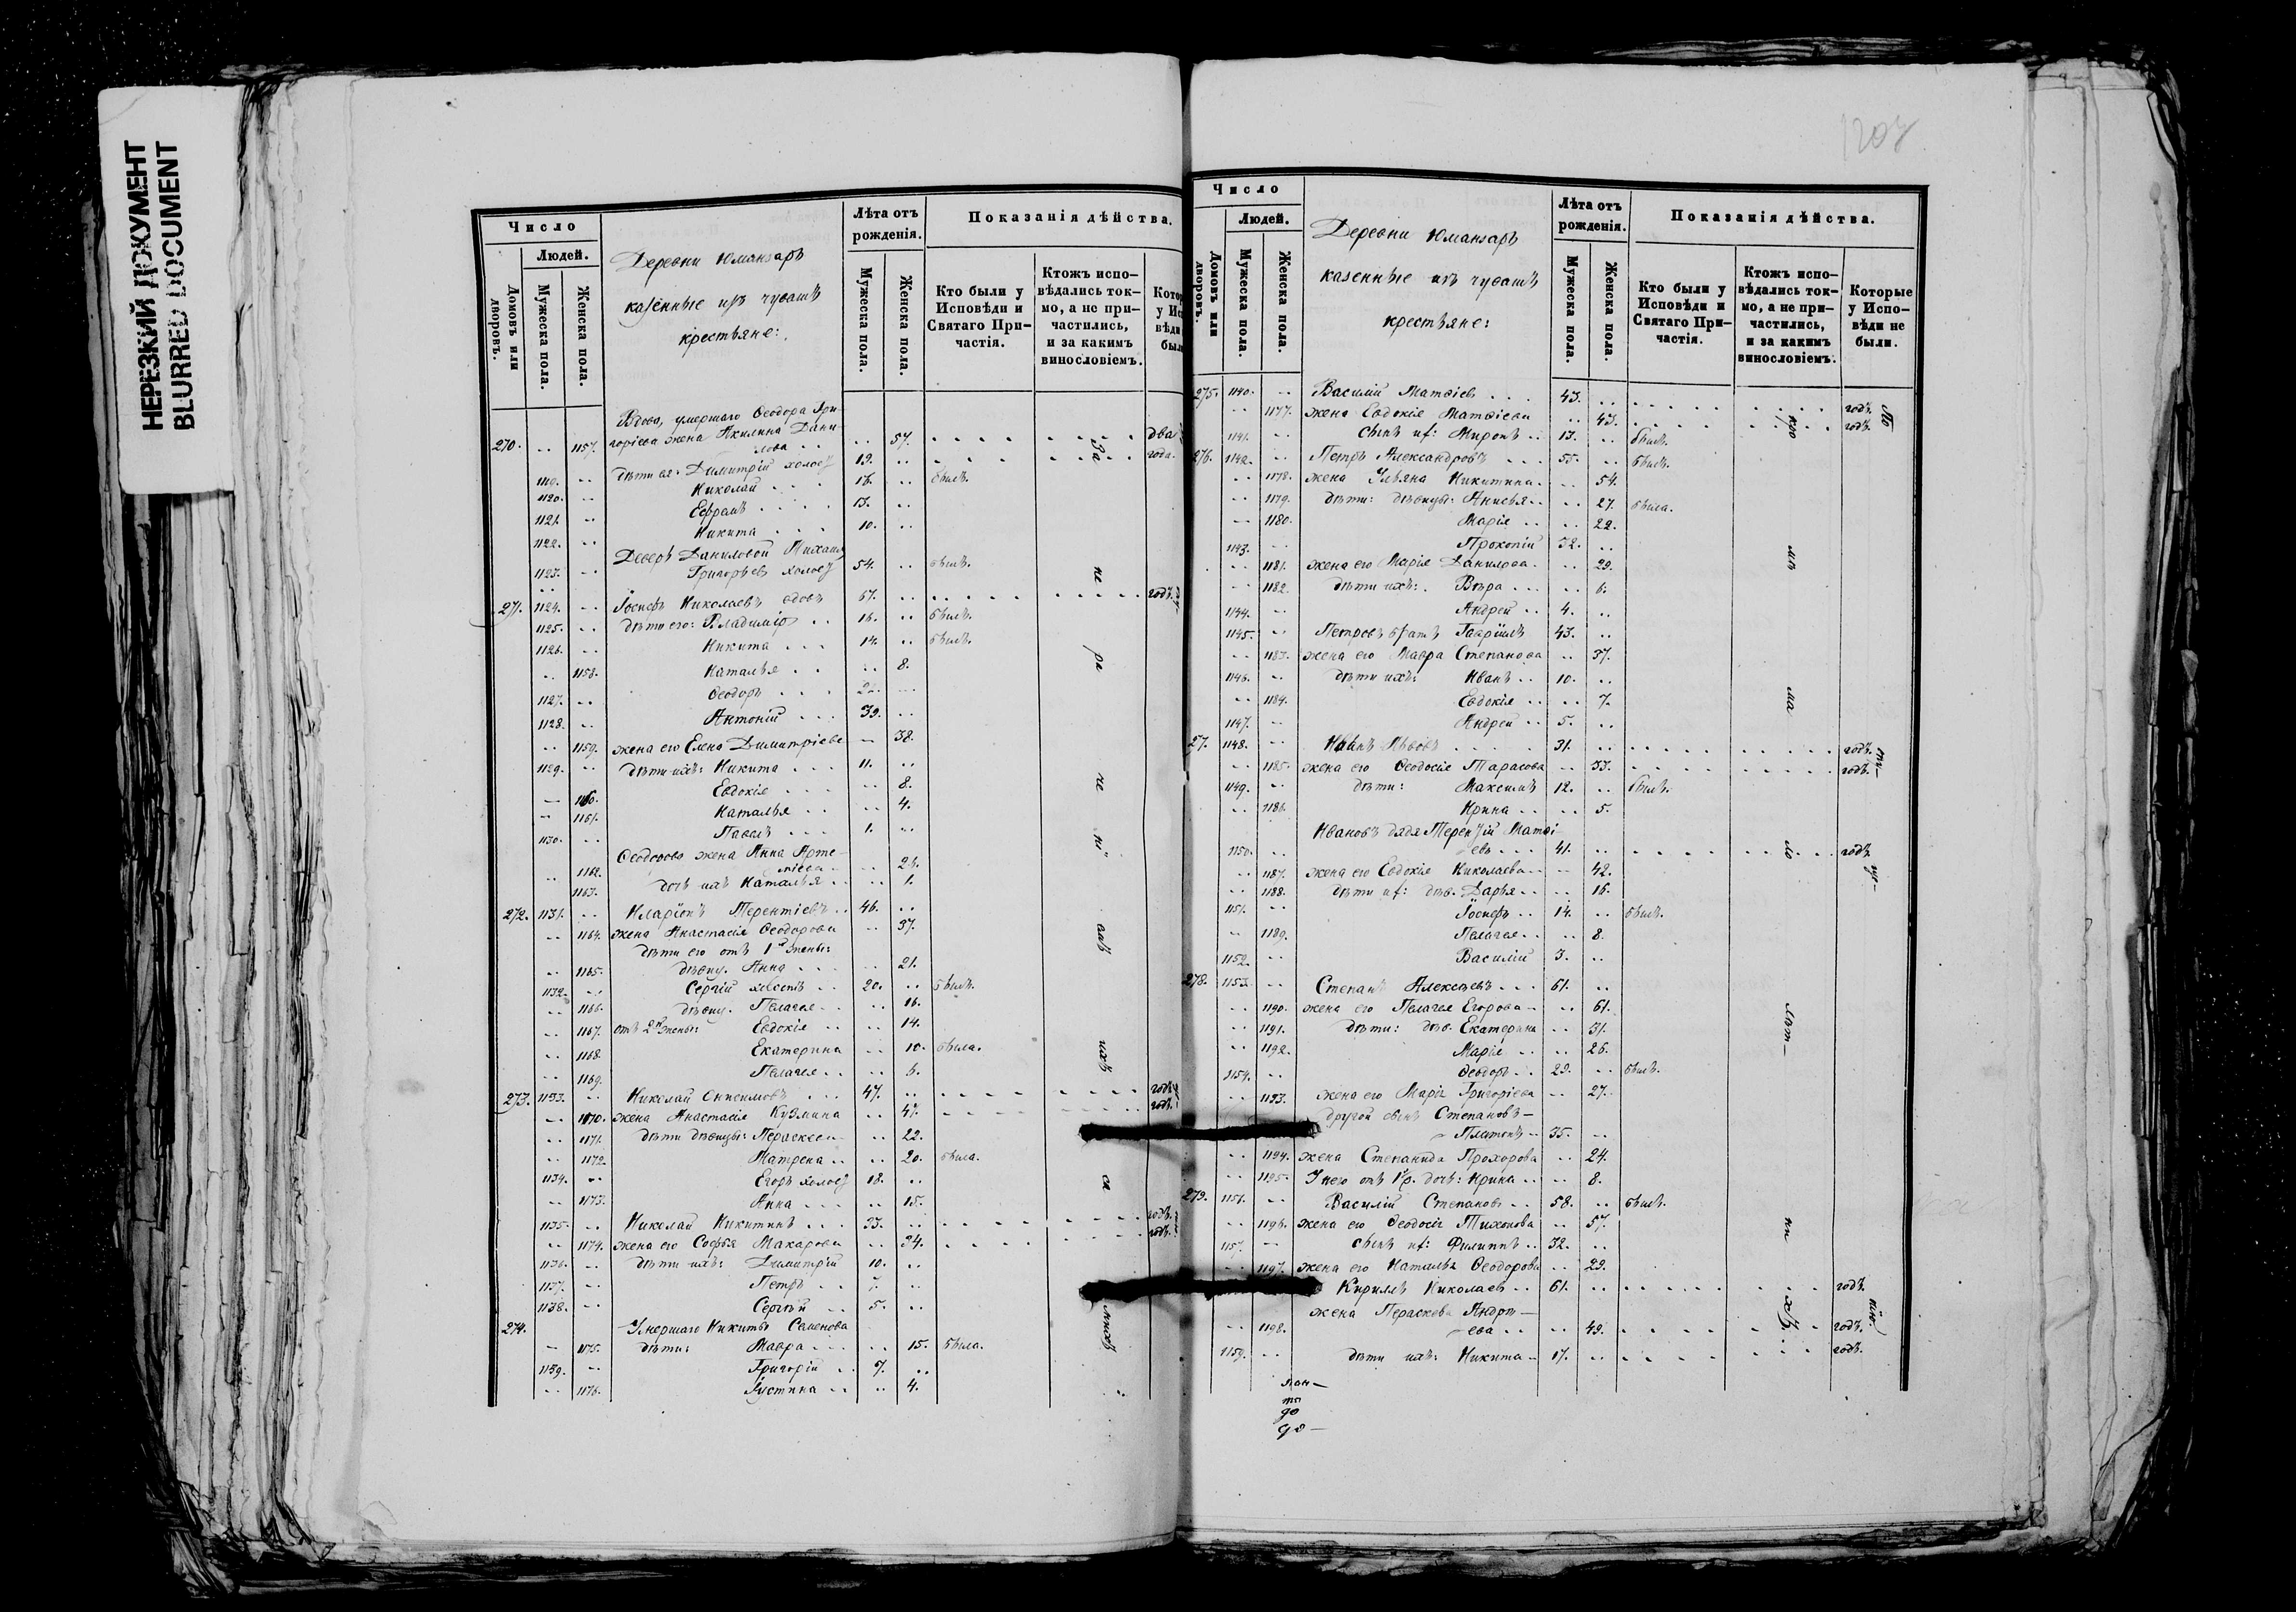 НЕРЕЗКИЙ ДОКУМЕНТ
BLURRED DOCUMENT
Число
Людей.
Домовъ или дворовъ.
Мужеска пола.
Женска пола.
Деревни Юманзаръ
казенные изъ чувашъ
крестьяне:
Лѣта отъ рожденія.
Мужеска пола.
Женска пола.
Показанія дѣйства.
Кто были у Исповѣди и Святаго Причастія.
Ктожъ исповѣдались токмо, а не причастились, и за какимъ винословіемъ.
Вдова, умершаго Ѳеодора Гри-
270. 1157. горіева жена Акилина Дани- 57. два
лова
дѣти ея: Димитрій холос 19. года.
1119. Николай 18. былъ.
1120. Ефремъ 13.
1121. Никита 10.
1122.
Деверь Даниловой Михаилъ
1123. Григорьевъ холос 54. былъ.
271. 1124. Іосифъ Николаевъ вдовъ 67. годъ.
1125. дѣти его: Владиміръ 16. былъ.
1126. Никита 14. былъ.
1158. Наталья 8.
1127. Ѳеодоръ 22.
1128. Антоній 39.
1159. жена его Елена Димитріева 38.
1129. дѣти ихъ: Никита 11.
1160. Евдокія 8.
1161. Наталья 4.
1130. Павелъ 1.
Ѳеодорова жена Анна Арте-
1162. міева 21.
1163. дочь ихъ Наталья 1.
272. 1131. Иларіонъ Терентіевъ 46.
1164. жена Анастасія Ѳеодорова 37.
дѣти его отъ 1й жены:
1165. дѣвиц. Анна 21.
1132. Сергій холостъ 20. былъ.
1166. дѣвиц. Пелагея 16.
1167. отъ 2й жены: Евдокія 14.
1168. Екатерина 10. была.
1169. Пелагея 6.
273. 1133. Николай Онисимовъ 47. годъ.
1170. жена Анастасія Кузмина 47. годъ.
1171. дѣти дѣвицы: Параскева 22.
1172. Матрена 20. была.
1134. Егоръ холос 18.
1173. Анна 15.
1135. Николай Никитинъ 33. годъ.
1174. жена его Софья Макарова 34. годъ.
1136. дѣти ихъ: Димитрій 10.
1137. Петръ 7.
1138. Сергѣй 5.
274. Умершаго Никиты Семенова
1175. дѣти: Мавра 15. была.
1139. Григорій 7.
1176. Іустина 4.
За
не
ра
че
ні
емъ
ихъ
1207
Число
Людей.
Домовъ или дворовъ.
Мужеска пола.
Женска пола.
Деревни Юманзаръ
казенные изъ чувашъ
крестьяне:
Лѣта отъ рожденія.
Мужеска пола.
Женска пола.
Показанія дѣйства.
Кто были у Исповѣди и Святаго Причастія.
Ктожъ исповѣдались токмо, а не причастились, и за какимъ винословіемъ.
Которые у Исповѣди не были.
275. 1140. Василій Матвіевъ 43. годъ.
1177. жена Евдокія Матвіева 43. годъ.
1141. сынъ их: Миронъ 13. былъ.
276. 1142. Петръ Александровъ 55. былъ.
1178. жена Ульяна Никитина 54.
1179. дѣти: дѣвицы: Анисья 27. была.
1180. Марія 22.
1143. Прокопій 32.
1181. жена его Марія Данилова 29.
1182. дѣти ихъ: Вѣра 6.
1144. Андрей 4.
1145. Петровъ братъ Гавріилъ 43.
1183. жена его Мавра Степанова 37.
1146. дѣти ихъ: Иванъ 10.
1184. Евдокія 7.
1147. Андрей 5.
27. 1148. Иванъ Львовъ 31. годъ.
1185. жена его Ѳеодосія Тарасова 33. годъ.
1149. дѣти: Максимъ 12. былъ.
1186. Ирина 5.
Ивановъ дядя Терентій Матві-
1150. евъ 41. годъ.
1187. жена его Евдокія Николаева 42.
1188. дѣти их: дѣв. Дарья 16.
1151. Іосифъ 14. былъ.
1189. Пелагея 8.
1152. Василій 3.
278. 1153. Степанъ Алексѣевъ 61.
1190. жена его Пелагея Егорова 61.
1191. дѣти: дѣв. Екатерина 31.
1192. Марія 26.
1154. Ѳеодоръ 29. былъ.
1193. жена его Марія Григоріева 27.
другой сынъ Степановъ
Платонъ 35.
1194. жена Степанида Прохорова 24.
1195. У него отъ 1 бр. дочь: Ирина 8.
279. 1156. Василій Степановъ 58. былъ.
1196. жена его Ѳеодосія Тихонова 57.
1157. сынъ их: Филиппъ 32.
1197. жена его Наталья Ѳеодорова 29.
Кирилъ Николаевъ 61. годъ.
жена Параскева Андрѣ-
1198. ева 49. годъ.
1159. дѣти ихъ: Никита 17. годъ.
кро
мѣ
ма
ло
лѣт
ни
хъ
По